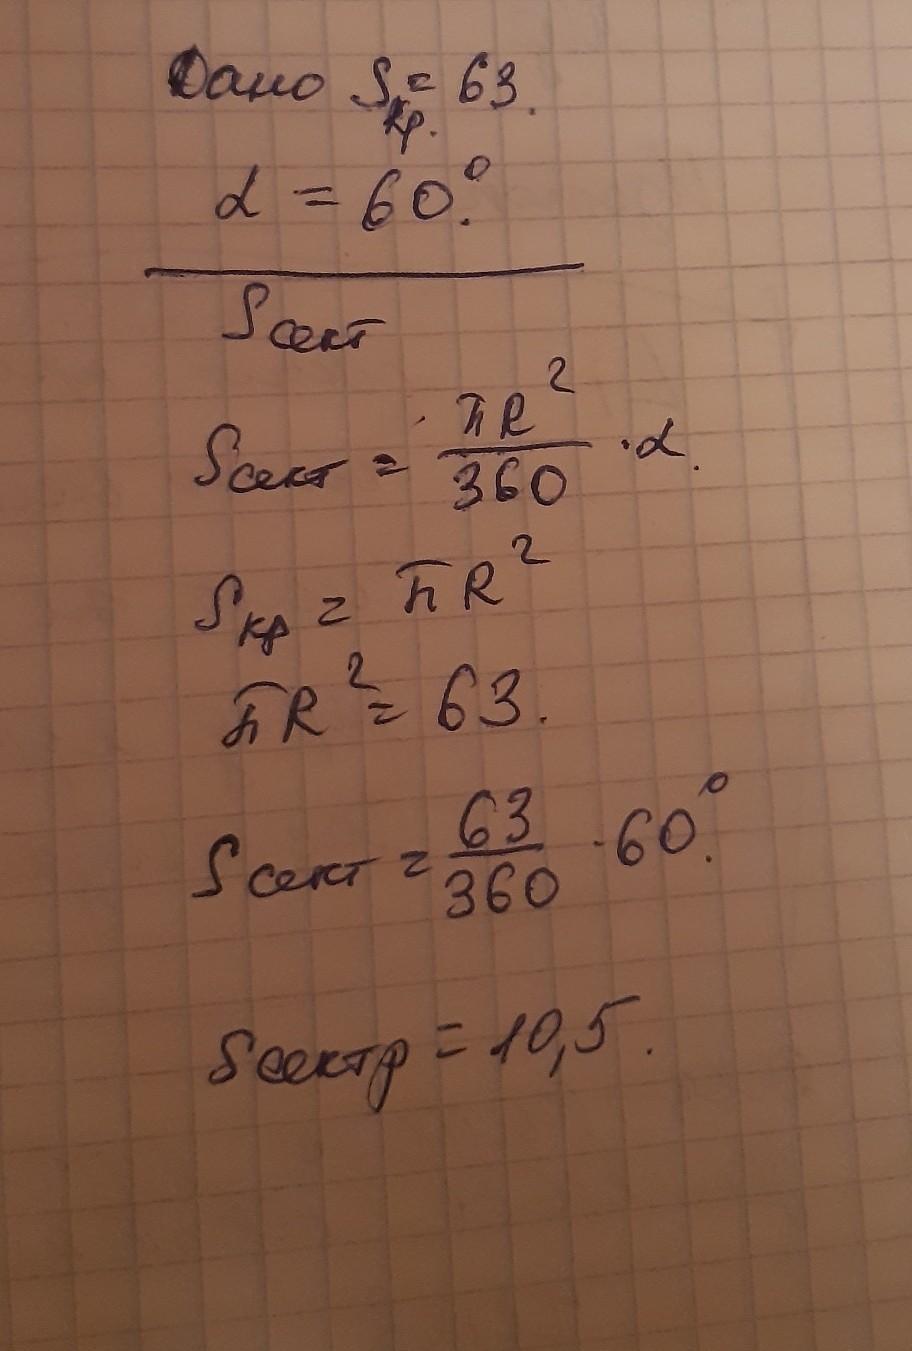 Дано Sкр. = 63.
α = 60°.
Sсект
Sсект = πR²/360 · α.
Sкр = πR²
πR² = 63.
Sсект = 63/360 · 60°.
Sсектр = 10,5.